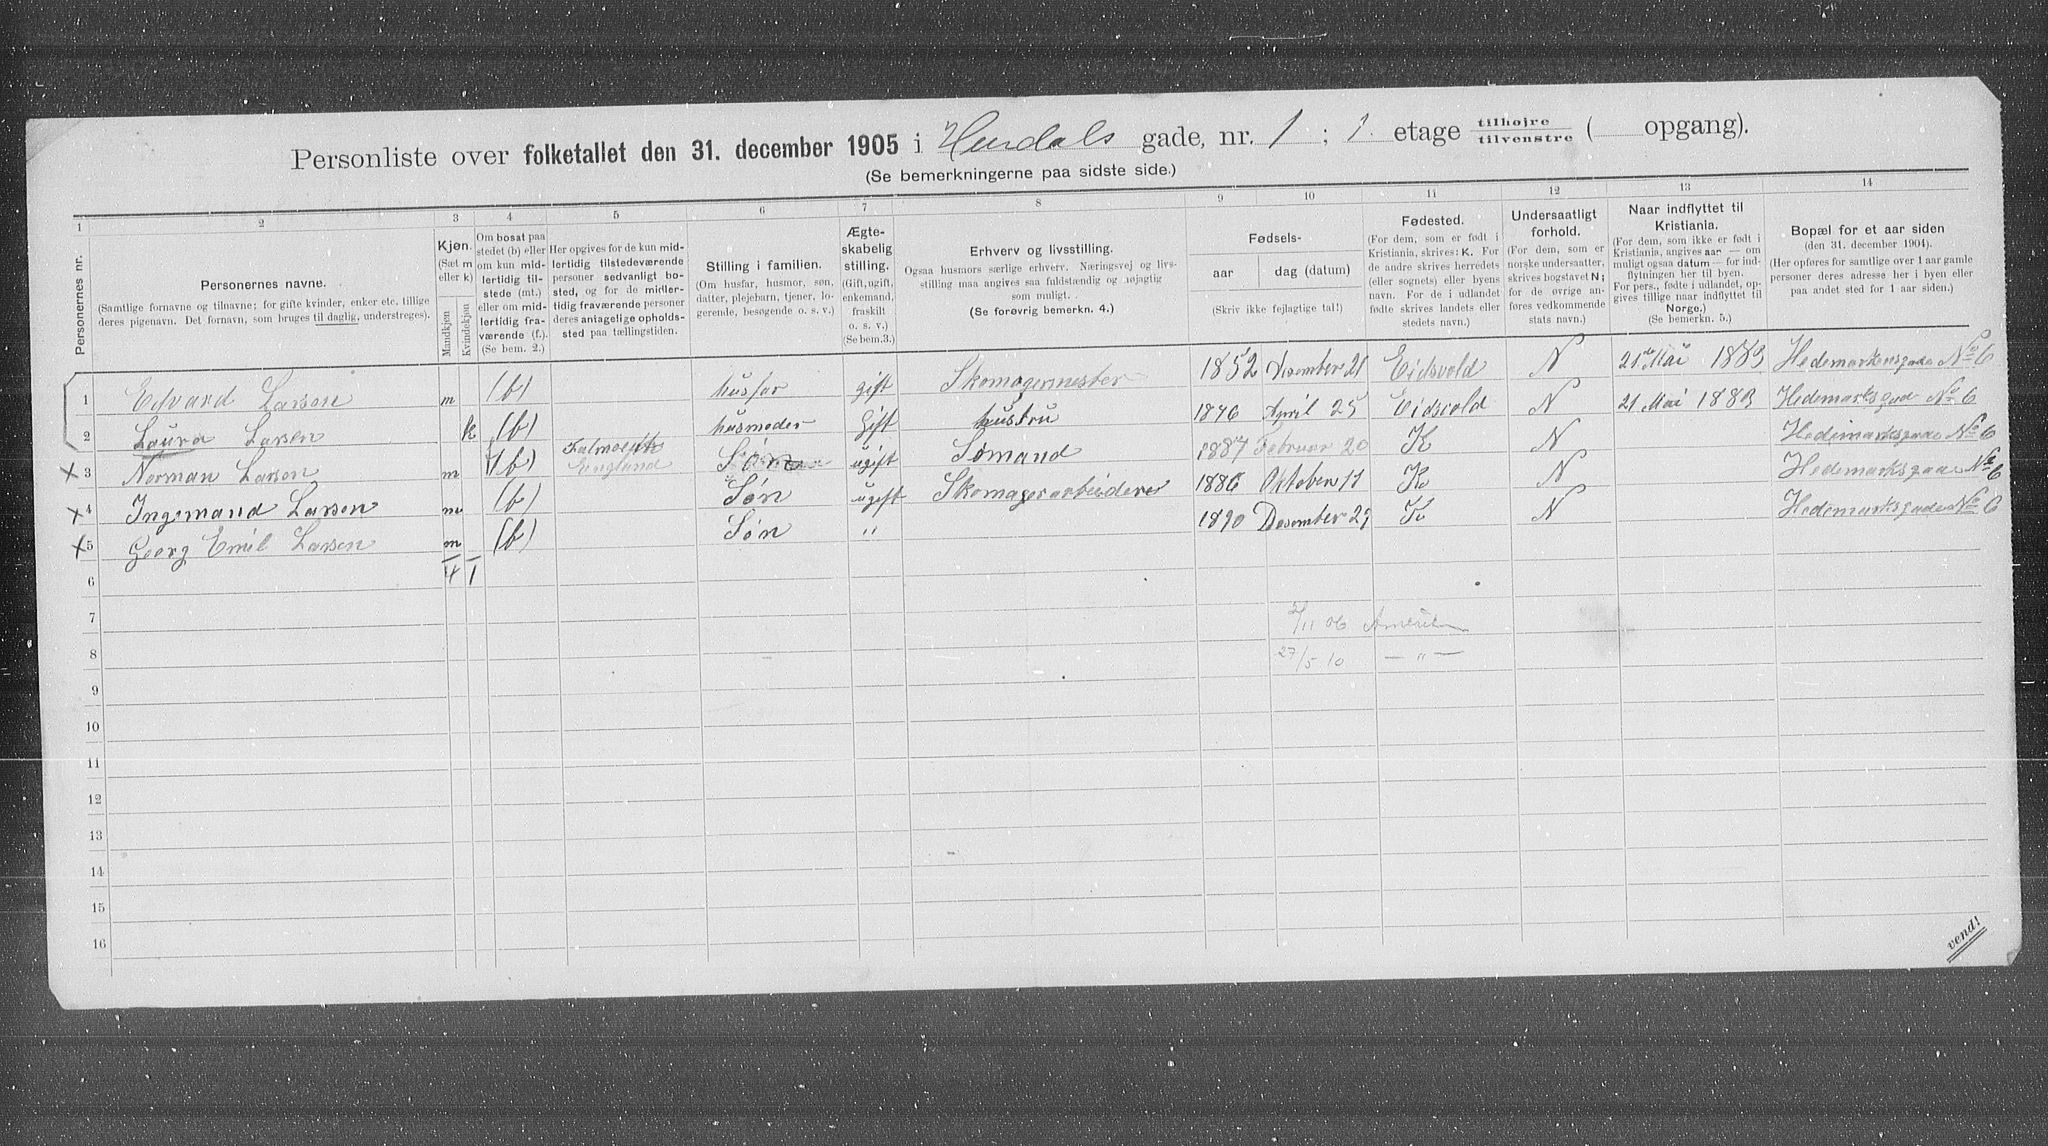 Personliste over folketallet den 31. december 1905 i Hurdals gade, nr. 1 ; 1 etage tilhøjre tilvenstre ( opgang).
(Se bemerkningerne paa sidste side.)
1 2 3 4 5 6 7 8 9 10 11 12 13 14
Personernes nr.
Personernes navne.
(Samtlige fornavne og tilnavne; for gifte kvinder, enker etc. tillige
deres pigenavn. Det fornavn, som bruges til daglig, understreges).
Kjøn.
(Sæt m
eller k)
Mandkjøn
Kvindekjøn
Om bosat paa
stedet (b) eller
om kun mid-
lertidig til-
stede (mt.)
eller om mid-
lertidig fra-
værende (f.).
(Se bem. 2.)
Her opgives for de kun mid-
lertidig tilstedeværende
personer sedvanligt bo-
sted, og for de midler-
tidig fraværende personer
deres antagelige opholds-
sted paa tællingstiden.
Stilling i familien.
(Om husfar, husmor, søn,
datter, plejebarn, tjener, lo-
gerende, besøgende o. s. v.)
Ægte-
skabelig
stilling.
(Gift, ugift,
enkemand,
fraskilt
o. s. v.)
(Se bem.3.)
Erhverv og livsstilling.
Ogsaa husmors særlige erhverv. Næringsvej og livs-
stilling maa angives saa fuldstændig og nøjagtig
som muligt.
(Se forøvrig bemerkn. 4.)
Fødsels-
aar dag (datum)
(Skriv ikke fejlagtige tal!)
Fødested.
(For dem, som er født i
Kristiania, skrives: K. For
de andre skrives herredets
(eller sognets) eller byens
navn. For de i udlandet
fødte skrives landets eller
stedets navn.)
Undersaatligt
forhold.
(For dem, som er
norske undersaatter,
skrives bogstavet N;
for de øvrige an-
føres vedkommende
stats navn.)
Naar indflyttet til
Kristiania.
(For dem, som ikke er født i
Kristiania, angives aar og om
muligt ogsaa datum for ind-
flytningen her til byen.
For pers., fødte i udlandet, op-
gives tillige naar indflyttet til
Norge.)
(Se bemerkn. 5.)
Bopæl for et aar siden
(den 31. december 1904).
(Her opføres for samtlige over 1 aar gamle
personer deres adresse her i byen eller
paa andet sted for 1 aar siden.)
1 Edvard Larsen m (b) husfar gift Skomagermester 1852 Desember 21 Eidsvold N 21 Mai 1883 Hedemarkensgade No 6
2 Laura Larsen k (b) husmoder Gift hustru 1846 April 25 Eidsvold N 21 Mai 1883 Hedemarksgade No 6
x 3 Norman Larsen m (b) England Søn ugift Sømand 1887 Februar 20 K N Hedemarksgade No 6
x 4 Ingemand Larsen m (b) Søn ugift Skomagerarbeider 1886 Oktober 11 K N Hedemarksgade No 6
x 5 Georg Emil Larsen m (b) Søn " 1890 Desember 29 K N Hedemarksgade No 6
6 4 1
7 2/11 06 Amerika
8 27/5 10 — " —
9
10
11
12
13
14
15
16
vend!